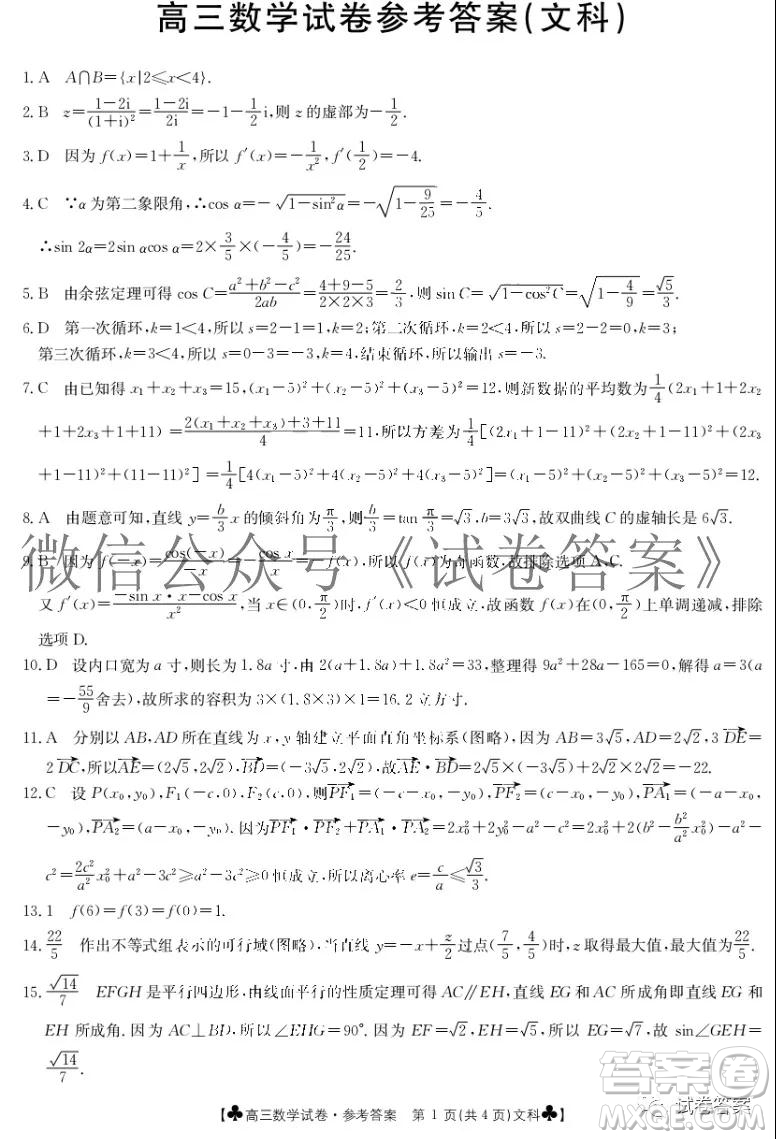 高三数学试卷参考答案(文科)
1. A A∩B={x|2≤x<4}.
2. B z=\frac{1-2i}{(1+i)^2}=\frac{1-2i}{2i}=-1-\frac{1}{2}i,则 z 的虚部为-\frac{1}{2}.
3. D 因为 f(x)=1+\frac{1}{x},所以 f'(x)=-\frac{1}{x^2},f'(\frac{1}{2})=-4.
4. C ∵α为第二象限角,∴cos α=-\sqrt{1-sin^2α}=-\sqrt{1-\frac{9}{25}}=-\frac{4}{5}.
∴sin 2α=2sin αcos α=2×\frac{3}{5}×(-\frac{4}{5})=-\frac{24}{25}.
5. B 由余弦定理可得 cos C=\frac{a^2+b^2-c^2}{2ab}=\frac{4+9-5}{2×2×3}=\frac{2}{3},则 sin C=\sqrt{1-cos^2C}=\sqrt{1-\frac{4}{9}}=\frac{\sqrt{5}}{3}.
6. D 第一次循环,k=1<4,所以 s=2-1=1,k=2;第二次循环,k=2<4,所以 s=2-2=0,k=3;
第三次循环,k=3<4,所以 s=0-3=-3,k=4,结束循环,所以输出 s=-3.
7. C 由已知得 x₁+x₂+x₃=15,(x₁-5)²+(x₂-5)²+(x₃-5)²=12,则新数据的平均数为\frac{1}{4}(2x₁+1+2x₂
+1+2x₃+1+11)=\frac{2(x₁+x₂+x₃)+3+11}{4}=11,所以方差为\frac{1}{4}[(2x₁+1-11)²+(2x₂+1-11)²+(2x₃
+1-11)²+(11-11)²]=\frac{1}{4}[4(x₁-5)²+4(x₂-5)²+4(x₃-5)²]=12.
8. A 由题意可知,直线 y=\frac{b}{3}x 的倾斜角为\frac{π}{3},则\frac{b}{3}=tan\frac{π}{3}=\sqrt{3},b=3\sqrt{3},故双曲线 C 的虚轴长是 6\sqrt{3}.
9. B 因为 f(-x)=\frac{cos(-x)}{-x}=-\frac{cos x}{x}=-f(x),所以 f(x)为奇函数,故排除选项 A,C.
又 f'(x)=\frac{-sin x·x-cos x}{x^2},当 x∈(0,\frac{π}{2})时,f'(x)<0 恒成立,故函数 f(x)在(0,\frac{π}{2})上单调递减,排除
选项 D.
微信公众号《试卷答案》
10. D 设内口宽为 a 寸,则长为 1.8a 寸,由 2(a+1.8a)+1.8a²=33,整理得 9a²+28a-165=0,解得 a=3(a
=-\frac{55}{9}舍去),故所求的容积为 3×(1.8×3)×1=16.2 立方寸.
11. A 分别以 AB,AD 所在直线为 x,y 轴建立平面直角坐标系(图略),因为 AB=3\sqrt{5},AD=2\sqrt{2},3\overrightarrow{DE}=
2\overrightarrow{DC},所以\overrightarrow{AE}=(2\sqrt{5},2\sqrt{2}),\overrightarrow{BD}=(-3\sqrt{5},2\sqrt{2}),故\overrightarrow{AE}·\overrightarrow{BD}=2\sqrt{5}×(-3\sqrt{5})+2\sqrt{2}×2\sqrt{2}=-22.
12. C 设 P(x₀,y₀),F₁(-c,0),F₂(c,0),则\overrightarrow{PF₁}=(-c-x₀,-y₀),\overrightarrow{PF₂}=(c-x₀,-y₀),\overrightarrow{PA₁}=(-a-x₀,
-y₀),\overrightarrow{PA₂}=(a-x₀,-y₀).因为\overrightarrow{PF₁}·\overrightarrow{PF₂}+\overrightarrow{PA₁}·\overrightarrow{PA₂}=2x₀²+2y₀²-a²-c²=2x₀²+2(b²-\frac{b²}{a²}x₀²)-a²-
c²=\frac{2c²}{a²}x₀²+a²-3c²≥a²-3c²≥0 恒成立,所以离心率 e=\frac{c}{a}≤\frac{\sqrt{3}}{3}.
13. 1 f(6)=f(3)=f(0)=1.
14. \frac{22}{5} 作出不等式组表示的可行域(图略),当直线 y=-x+\frac{z}{2}过点(\frac{7}{5},\frac{4}{5})时,z 取得最大值,最大值为\frac{22}{5}.
15. \frac{\sqrt{14}}{7} EFGH 是平行四边形,由线面平行的性质定理可得 AC∥EH,直线 EG 和 AC 所成角即直线 EG 和
EH 所成角.因为 AC⊥BD,所以∠EHG=90°.因为 EF=\sqrt{2},EH=\sqrt{5},所以 EG=\sqrt{7},故 sin∠GEH=
\frac{\sqrt{14}}{7}.
【♣高三数学试卷·参考答案 第 1 页(共 4 页)文科♣】
试卷答案
答案圈
MXQE.COM